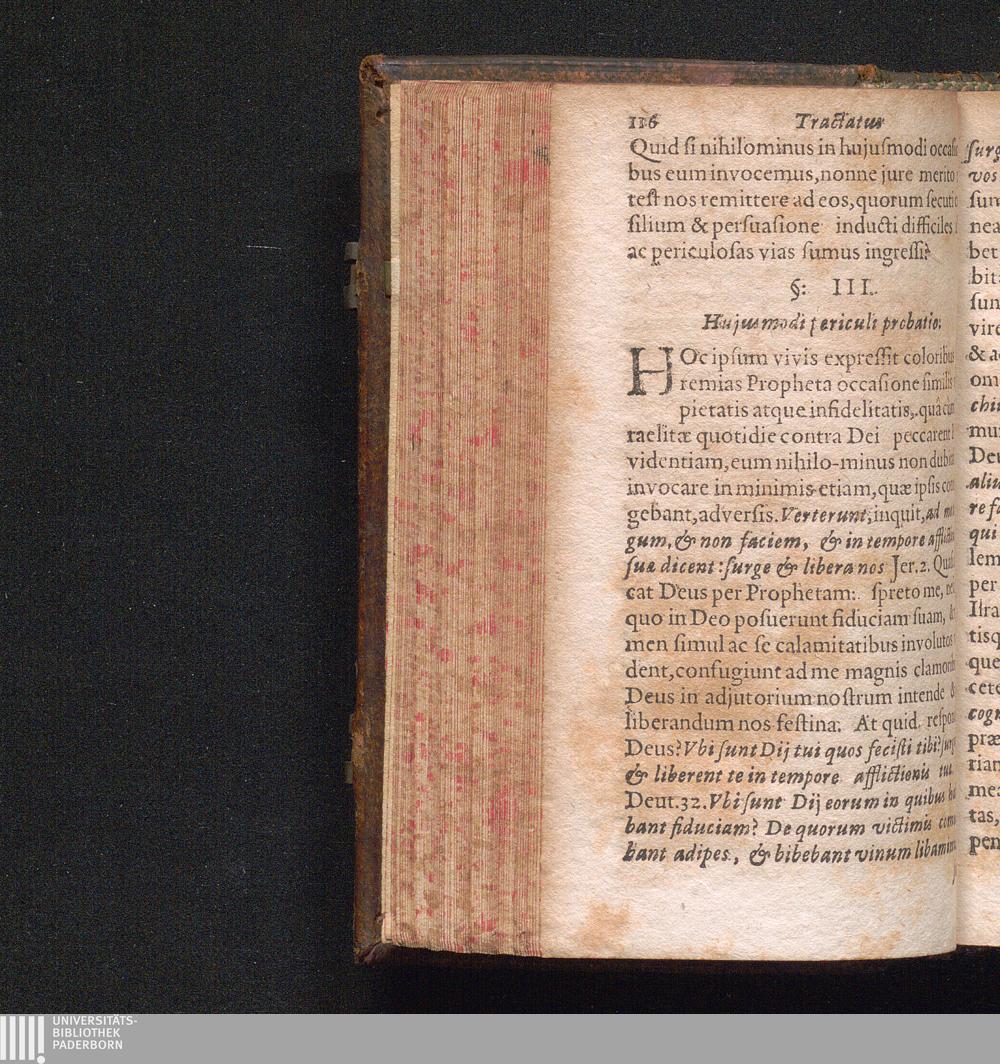 116 Tractatus
Quid si nihilominus in hujusmodi occasi
bus eum invocemus, nonne jure merito
test nos remittere ad eos, quorum secuti
silium & persuasione inducti difficiles
ac periculosas vias sumus ingressi?
§: III.
Hujusmodi periculi probatio.
HOc ipsum vivis expressit coloribus
remias Propheta occasione similis
pietatis atque infidelitatis, quâ cùm
raelitæ quotidie contra Dei peccarent
videntiam, eum nihilo-minus non dubi
invocare in minimis etiam, quæ ipsis con
gebant, adversis. Verterunt, inquit, ad me
gum, & non faciem, & in tempore afflictio
suæ dicent: surge & libera nos Jer. 2. Quasi
cat Deus per Prophetam: spreto me, ne
quo in Deo posuerunt fiduciam suam,
men simul ac se calamitatibus involutos
dent, confugiunt ad me magnis clamorib
Deus in adjutorium nostrum intende &
liberandum nos festina. At quid respon
Deus? Vbi sunt Dij tui quos fecisti tibi? surg
& liberent te in tempore afflictionis tuæ
Deut. 32. Vbi sunt Dij eorum in quibus ha
bant fiduciam? De quorum victimis come
bant adipes, & bibebant vinum libamin
surg
vos
sum
nea
bet
bit
sun
vire
& a
om
chi
mu
Deu
aliu
re fa
qui
lem
per
Isra
tisq
que
cete
cogn
præ
rian
mea
tas,
pen
UNIVERSITÄTS-
BIBLIOTHEK
PADERBORN